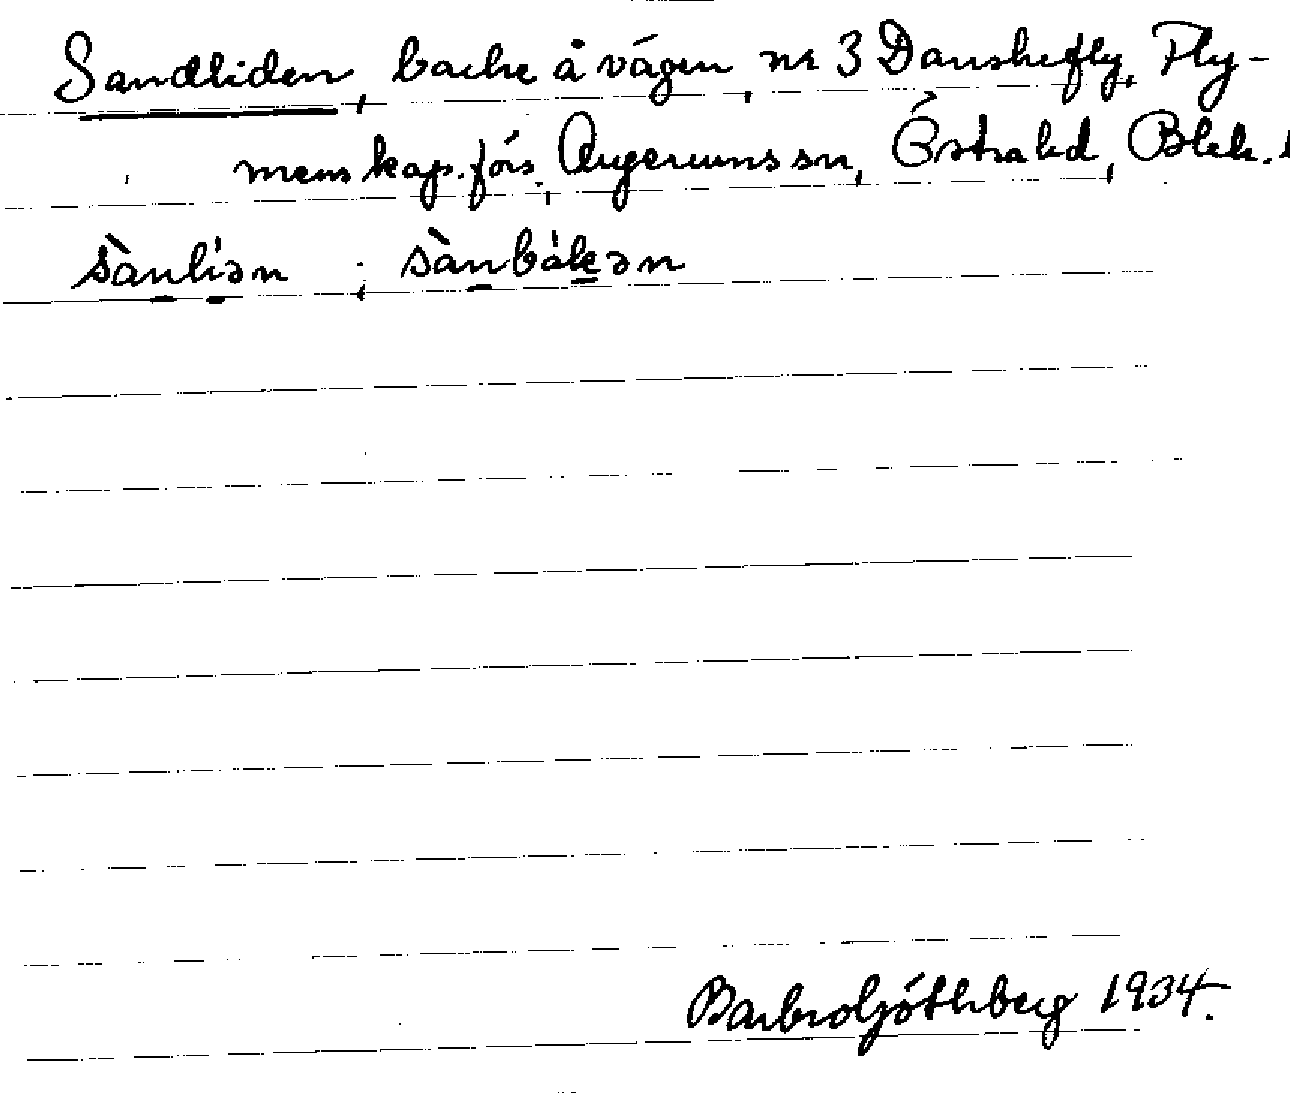 Sandliden, backe å vägen, nr 3 Danskefly, Fly-
menskap. förs., Augerums sn, Östra hd, Blek. l
sànlíən ; sànbákən
Barbro Göthberg 1934.